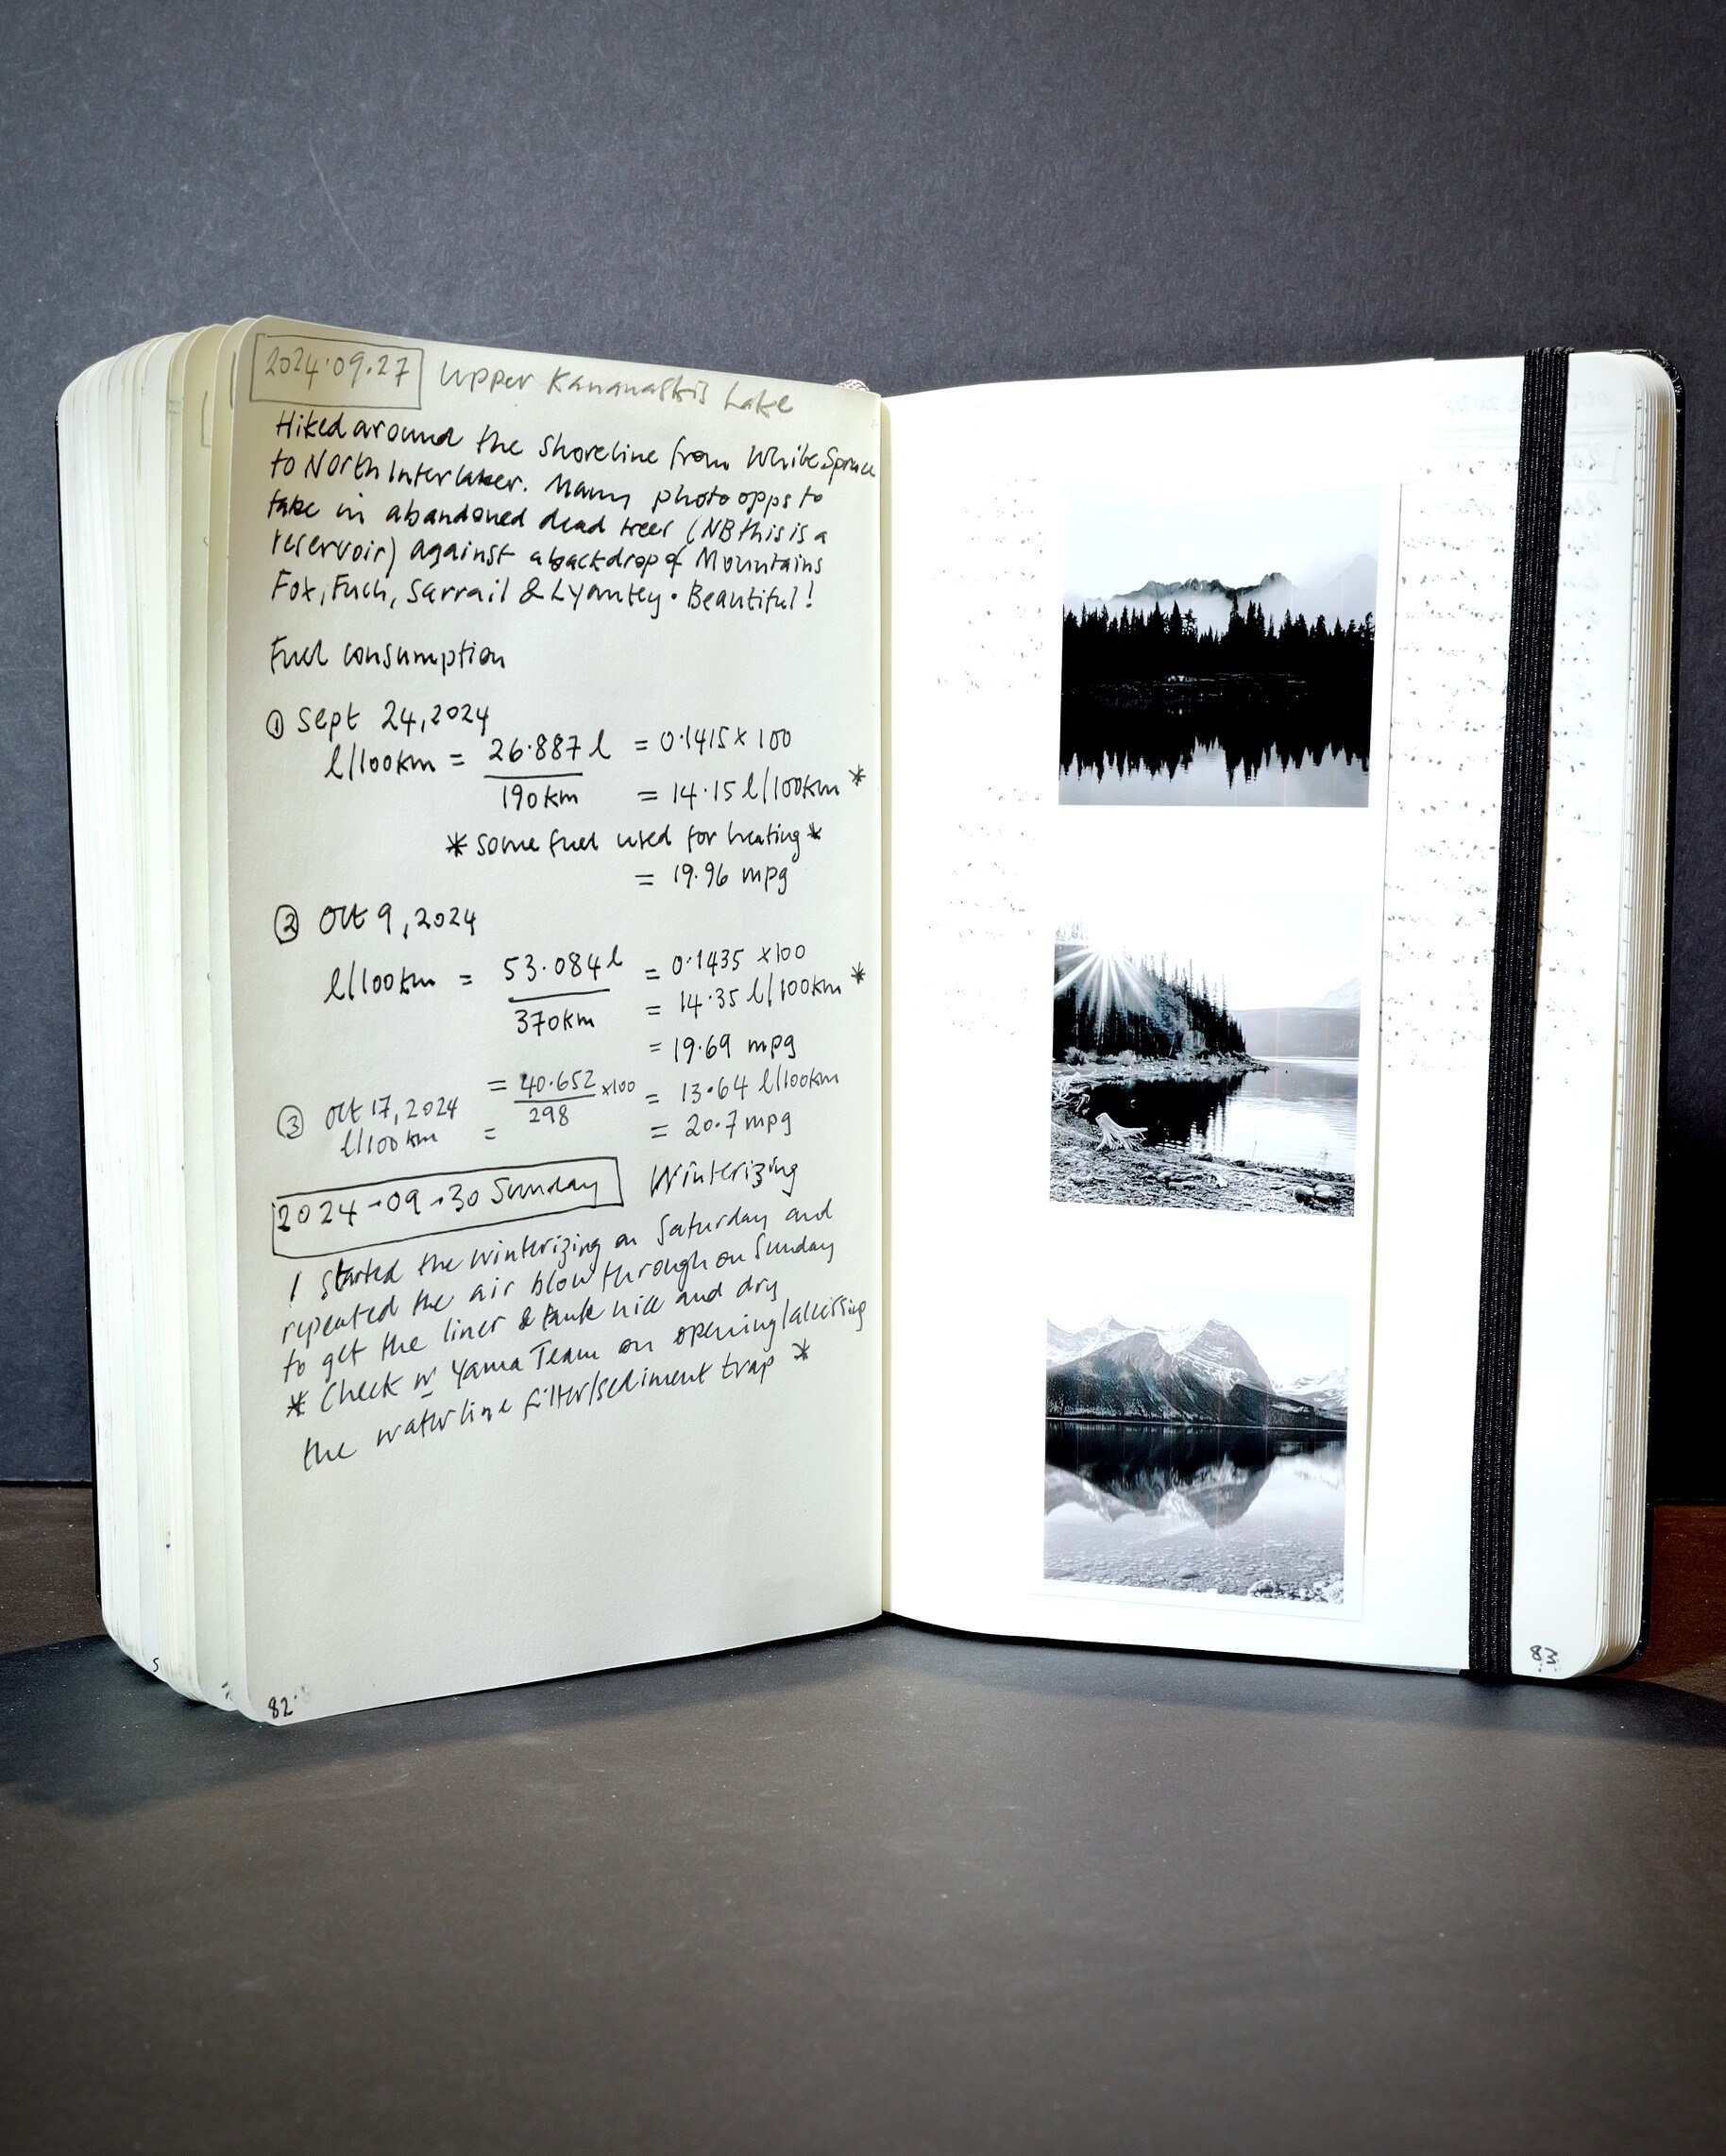 2024.09.27 Upper Kananaskis Lake
Hiked around the shoreline from White Spruce
to North Interlaken. Many photo opps to
take in abandoned dead trees (NB this is a
reservoir) against a backdrop of Mountains
Fox, Foch, Sarrail & Lyautey. Beautiful!
Fuel consumption
① Sept 24, 2024
l/100km = 26.887 l = 0.1415 x 100
190km = 14.15 l/100km *
* some fuel used for heating *
= 19.96 mpg
② Oct 9, 2024
l/100km = 53.084 l = 0.1435 x100
370km = 14.35 l/100km *
= 19.69 mpg
③ Oct 17, 2024 = 40.652 x100 = 13.64 l/100km
l/100km = 298 = 20.7 mpg
2024-09-30 Sunday Winterizing
I started the winterizing on Saturday and
repeated the air blow through on Sunday
to get the liner & tank nice and dry
* Check w Yama Team on opening/accessing
the waterline filter/sediment trap *
82.
83